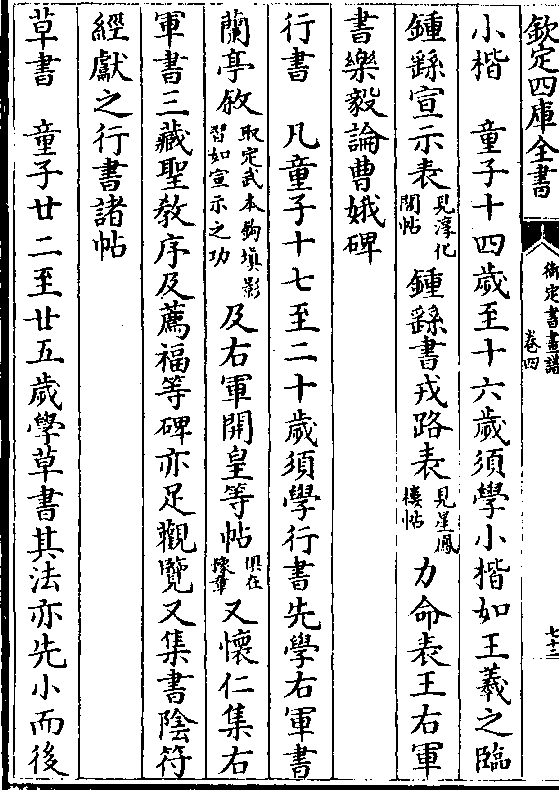 欽定四庫全書
御定書畫譜
卷四
小楷　童子十四歲至十六歲須學小楷如王羲之臨
鍾繇宣示表見淳化閣帖鍾繇書戎路表見星鳳樓帖力命表王右軍
書樂毅論曹娥碑
行書　凡童子十七至二十歲須學行書先學右軍書
蘭亭敘取定武本鉤填影習如宣示之功及右軍開皇等帖俱在豫章又懷仁集右
軍書三藏聖教序及薦福等碑亦足觀覽又集書陰符
經獻之行書諸帖
草書　童子廿二至廿五歲學草書其法亦先小而後